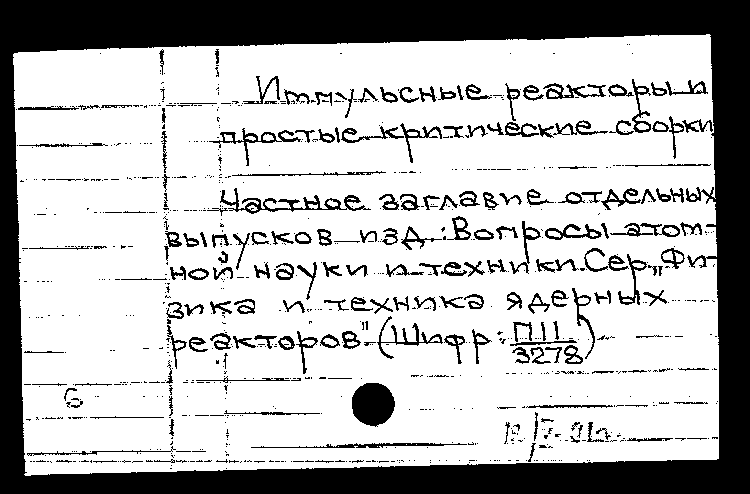 Импульсные реакторы и
простые критические сборки
Частное заглавие отдельных
выпусков изд.: Вопросы атом-
ной науки и техники. Сер. „Фи-
зика и техника ядерных
реакторов". (Шифр: П11/3278)
6